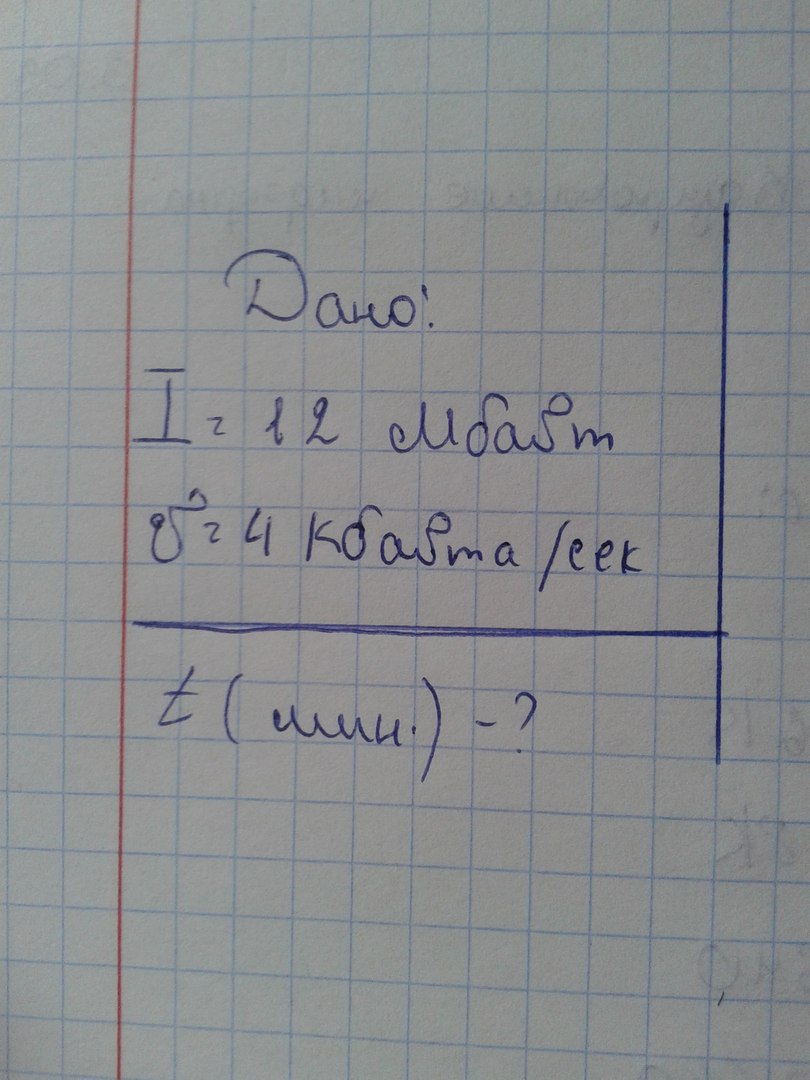 Дано:
I = 12 Мбайт
v = 4 Кбайта/сек
t (мин.) - ?